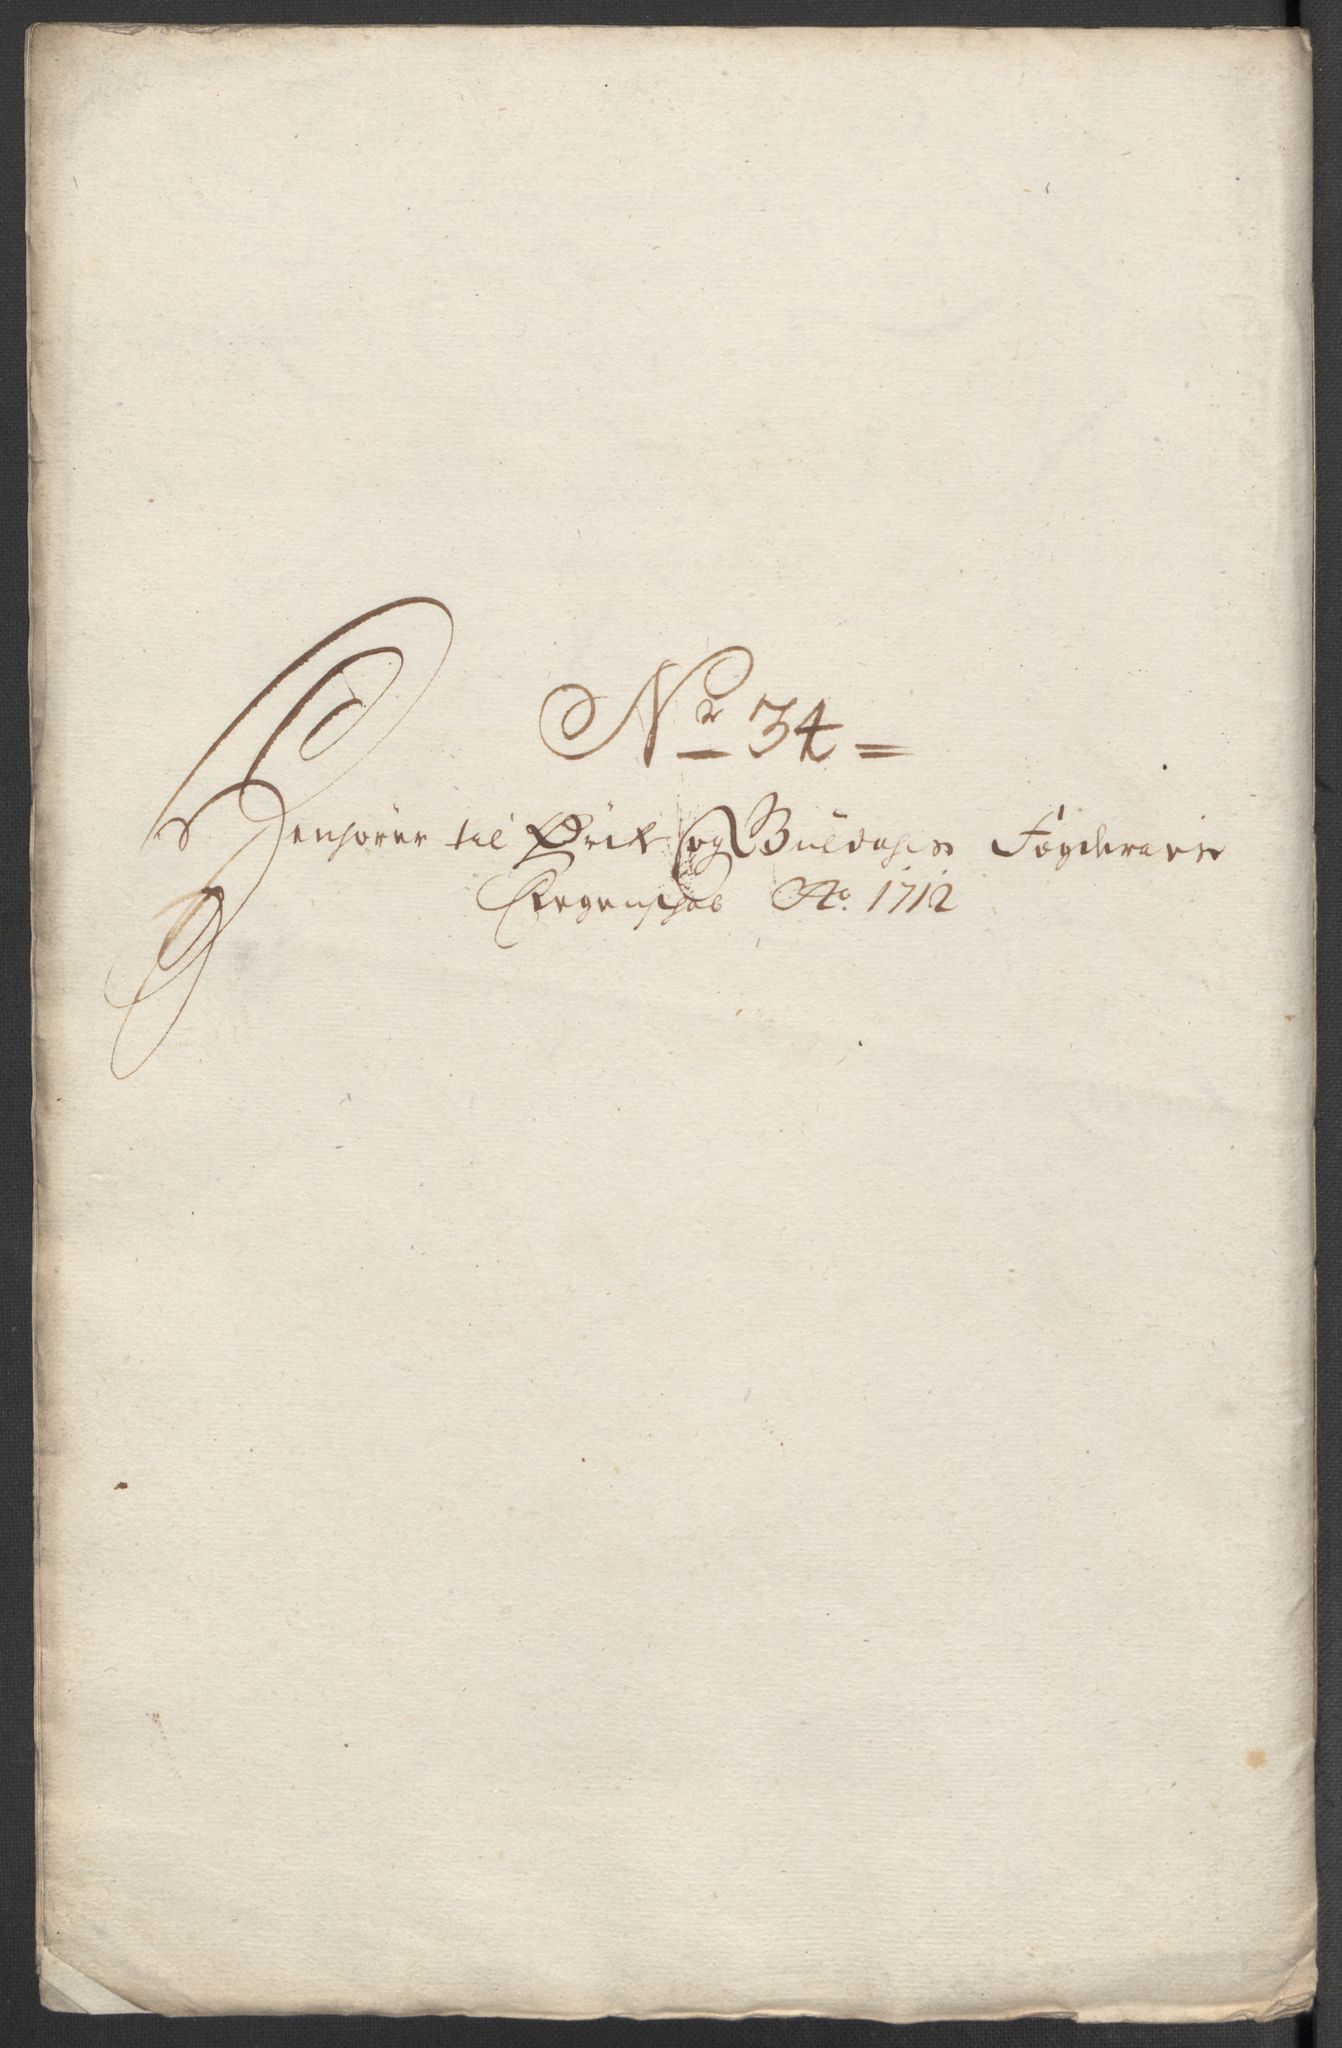 Nr 34 =
Henhører til Ørck: og Guldahls Fogderies
Regenskab Ao. 1712